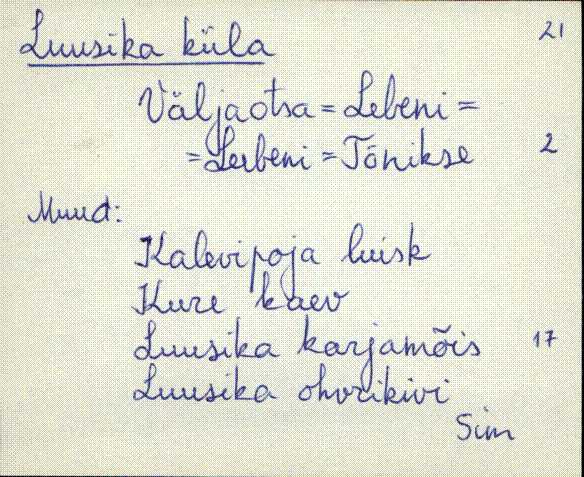 Luusika küla 21
Väljaotsa = Lebeni =
= Lerbeni = Tõnikse 2
Muud:
Kalevipoja luisk
Kure kaev
Luusika karjamõis 17
Luusika ohvrikivi
Sim